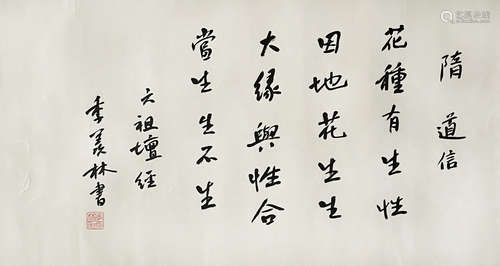 隋 道信
花種有生性
因地花生生
大緣與性合
當生生不生
六祖壇經
季羨林書